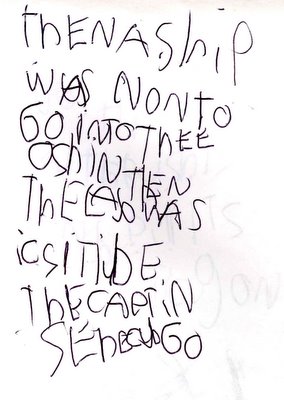 THENASHIP
WAS NONTO
GO INTOTHEE
OSHINTHEN
THELASOWAS
iCSITIDE
THECAPTiN
SEHECUDGO